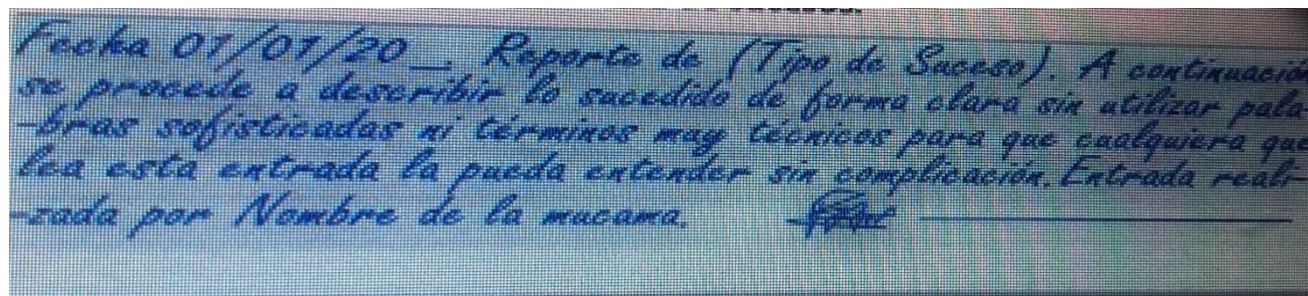 Fecha 01/01/20__. Reporte de (Tipo de Suceso). A continuació
se procede a describir lo sucedido de forma clara sin utilizar pala
-bras sofisticadas ni términos muy técnicos para que cualquiera que
lea esta entrada la pueda entender sin complicación. Entrada reali-
-zada por Nombre de la mucama.